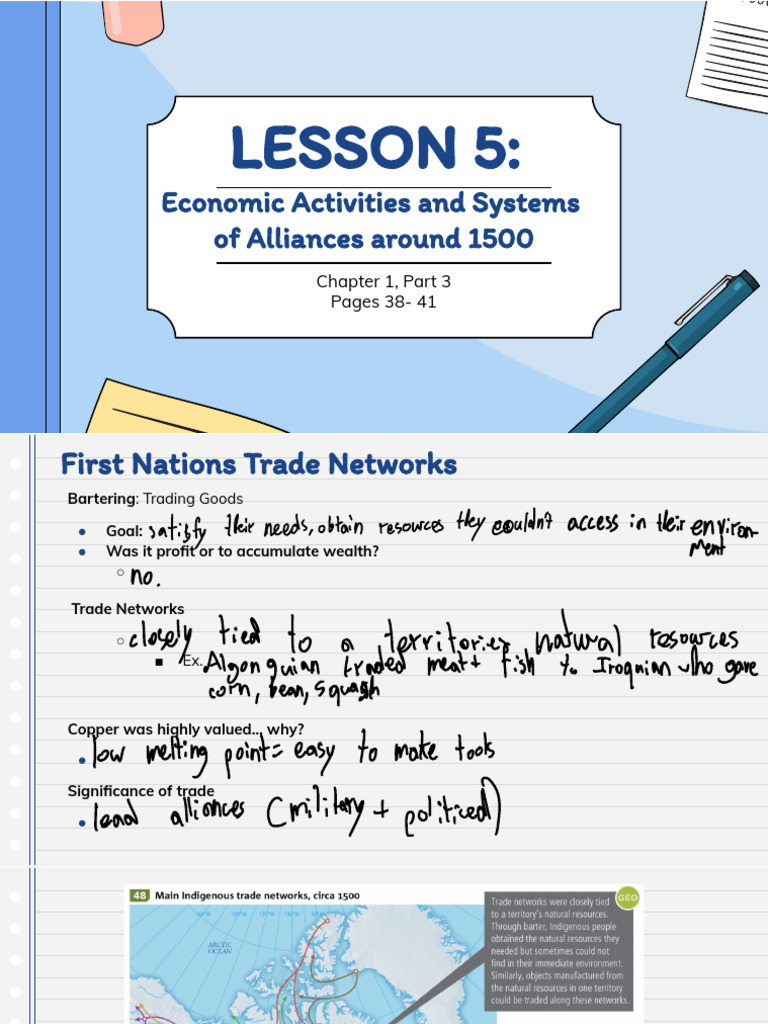 LESSON 5:
Economic Activities and Systems
of Alliances around 1500
Chapter 1, Part 3
Pages 38- 41
First Nations Trade Networks
Bartering: Trading Goods
Goal: satisfy their needs, obtain resources they couldn't access in their environ-
ment
Was it profit or to accumulate wealth?
no.
Trade Networks
closely tied to a territories natural resources
Ex. Algonquian traded meat + fish to Iroquian who gave
corn, bean, squash
Copper was highly valued... why?
low melting point = easy to make tools
Significance of trade
lead alliances (military + political)
48 Main Indigenous trade networks, circa 1500
GEO
Trade networks were closely tied
to a territory's natural resources.
Through barter, Indigenous people
obtained the natural resources they
needed but sometimes could not
find in their immediate environment.
Similarly, objects manufactured from
the natural resources in one territory
could be traded along these networks.
ARCTIC
OCEAN